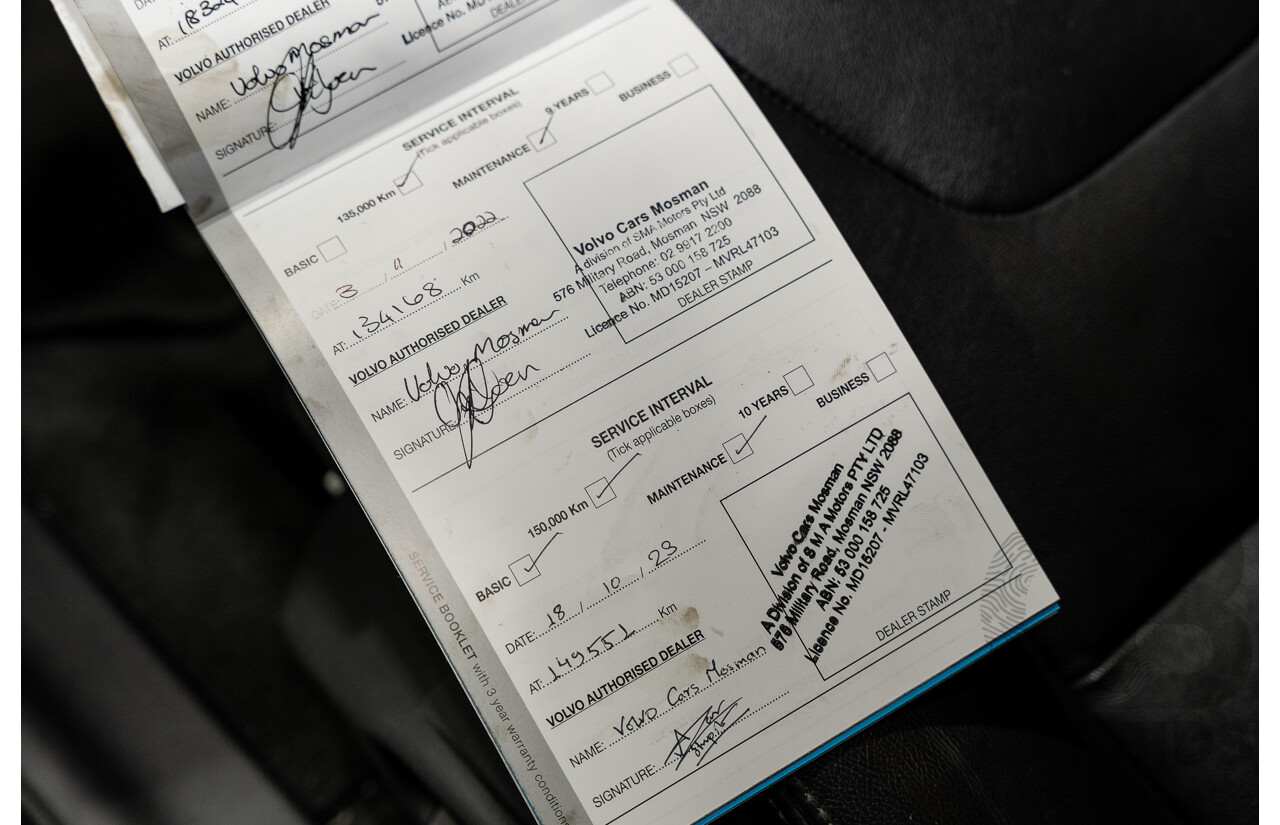 AT: 1832
VOLVO AUTHORISED DEALER
NAME: Volvo Mosman
SIGNATURE:
Licence No. MD
DEALER
SERVICE INTERVAL
(Tick applicable boxes)
135,000 Km
MAINTENANCE
9 YEARS
BUSINESS
BASIC
DATE: 3 / 11 / 2022
AT: 134168 Km
VOLVO AUTHORISED DEALER
NAME: Volvo Mosman
SIGNATURE:
Volvo Cars Mosman
A division of SMA Motors Pty Ltd
576 Military Road, Mosman NSW 2088
Telephone: 02 9917 2200
ABN: 53 000 158 725
Licence No. MD15207 – MVRL47103
DEALER STAMP
SERVICE INTERVAL
(Tick applicable boxes)
150,000 Km
MAINTENANCE
10 YEARS
BUSINESS
BASIC
DATE: 18 / 10 / 23
AT: 149551 Km
VOLVO AUTHORISED DEALER
NAME: Volvo Cars Mosman
SIGNATURE:
Volvo Cars Mosman
A Division of S M A Motors PTY LTD
576 Military Road, Mosman NSW 2088
ABN: 53 000 158 725
Licence No. MD15207 - MVRL47103
DEALER STAMP
SERVICE BOOKLET with 3 year warranty condition